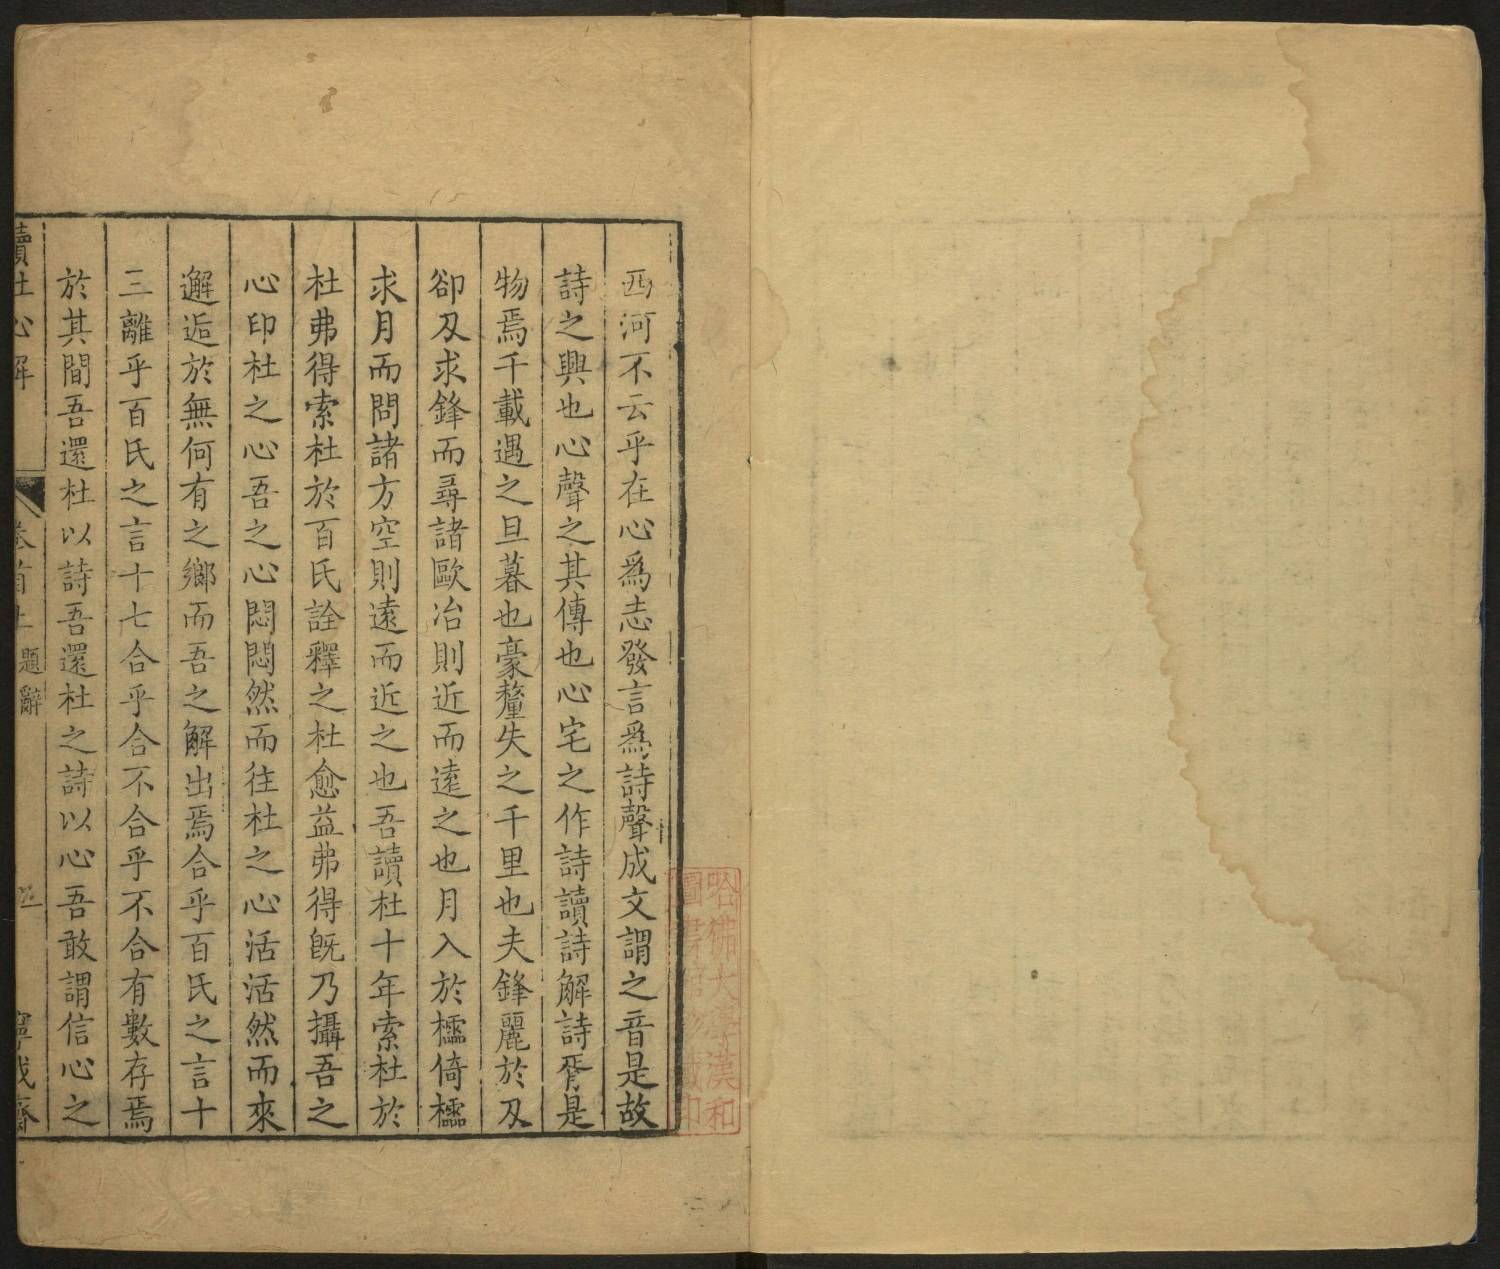 西河不云乎在心爲志發言爲詩聲成文謂之音是故
詩之興也心聲之其傳也心宅之作詩讀詩解詩胥是
物焉千載遇之旦暮也豪釐失之千里也夫鋒麗於刄
卻刄求鋒而尋諸歐冶則近而遠之也月入於櫺倚櫺
求月而問諸方空則遠而近之也吾讀杜十年索杜於
杜弗得索杜於百氏詮釋之杜愈益弗得旣乃攝吾之
心印杜之心吾之心悶悶然而往杜之心活活然而來
邂逅於無何有之鄉而吾之解出焉合乎百氏之言十
三離乎百氏之言十七合乎合不合乎不合有數存焉
於其間吾還杜以詩吾還杜之詩以心吾敢謂信心之
讀杜心解
卷首上 題辭
寧我齋
哈佛大學漢和
圖書館珍藏印